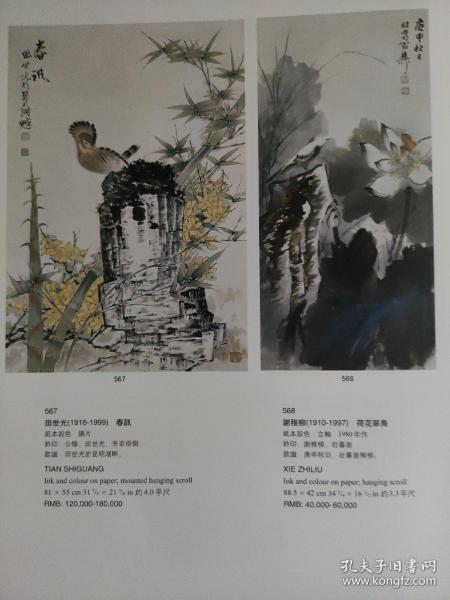 春訊
田世光
庚申秋日
567
568
567
田世光(1916-1999) 春訊
紙本設色 鏡片
鈐印：公煒、田世光、芳菲樹側
款識：田世光於昆明湖畔。
TIAN SHIGUANG
Ink and colour on paper; mounted hanging scroll
81 × 55 cm 31 7/8 × 21 5/8 in 約 4.0 平尺
RMB: 120,000-180,000
568
謝稚柳(1910-1997) 荷花翠鳥
紙本設色 立軸 1980年作
鈐印：謝稚柳、壯暮翁
款識：庚申秋日，壯暮翁稚柳。
XIE ZHILIU
Ink and colour on paper; hanging scroll
88.5 × 42 cm 34 7/8 × 16 1/2 in 約3.3 平尺
RMB: 40,000-60,000
孔夫子旧书网
www.kongfz.com